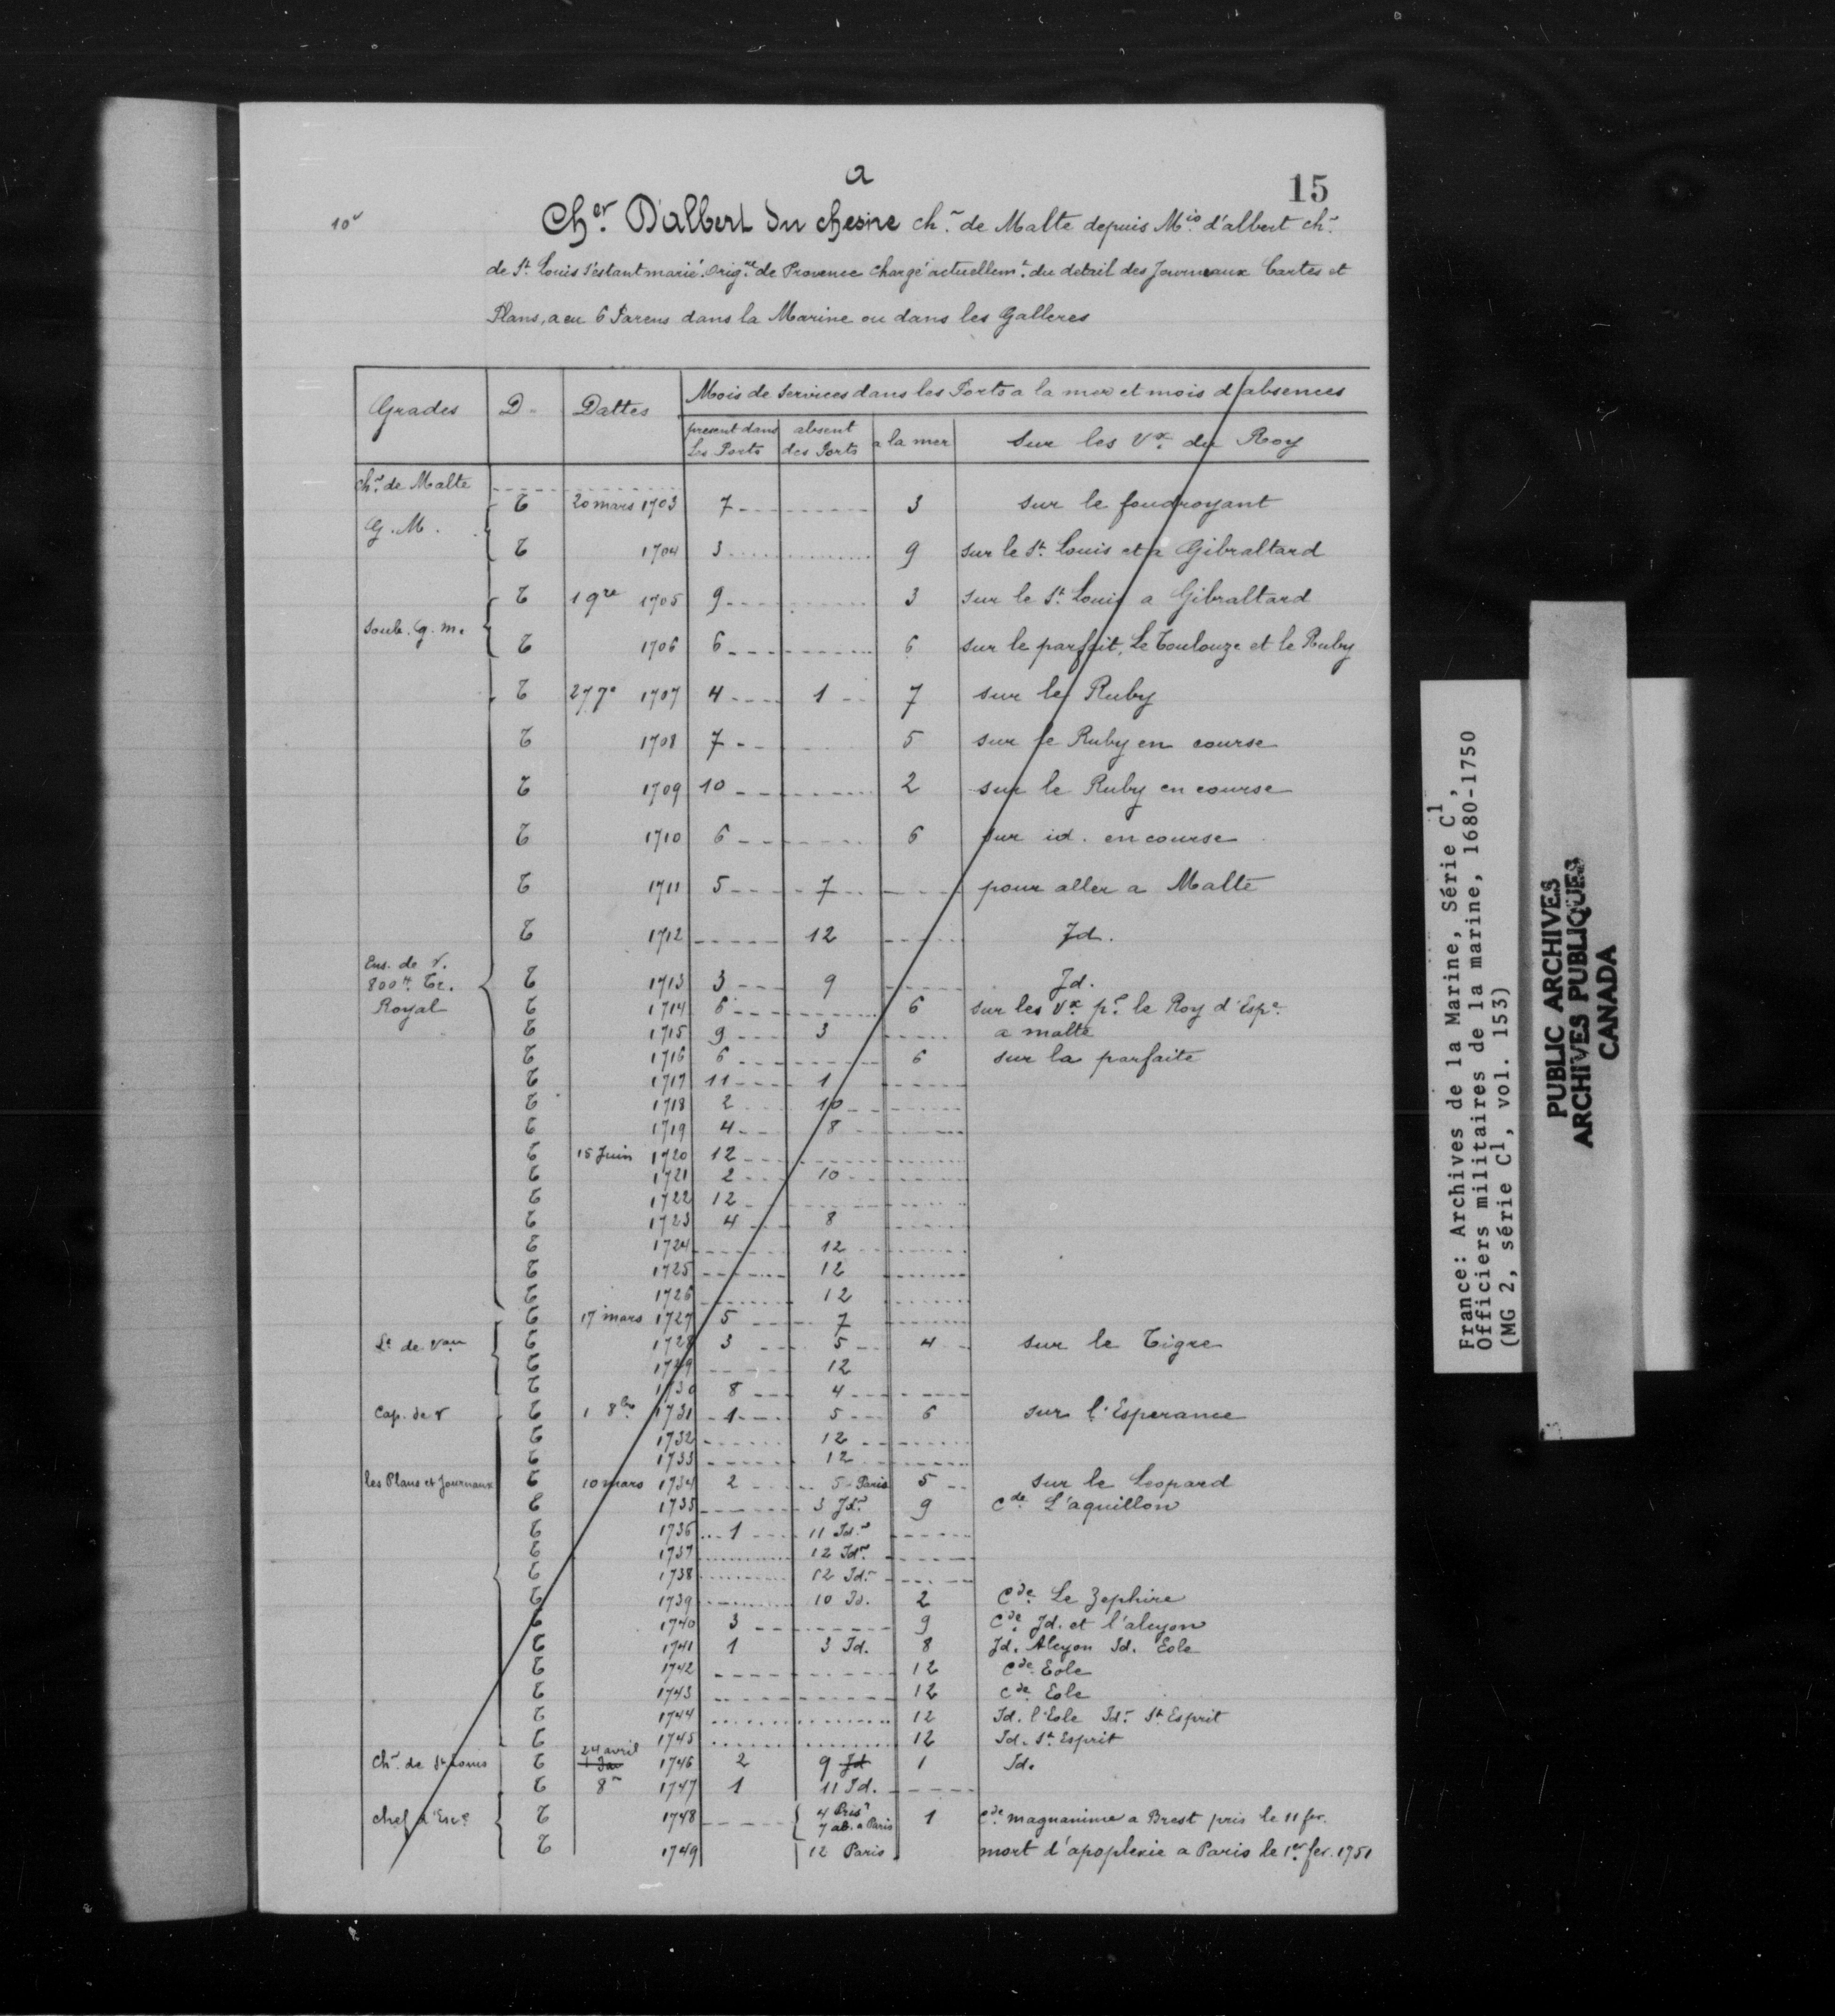 a
15
10e
Cher. D'albert du chesne chr. de Malte depuis Mis. d'albert chr.
de St. Louis s'estant marié. Orig.re de Provence chargé actuellemt. du detail des Journeaux Cartes et
Plans, a eu 6 Parens dans la Marine ou dans les Galleres
Grades D. Dattes Mois de services dans les Ports a la mer et mois d'absences
present dans Les Ports absent des Ports a la mer Sur les Vx. du Roy
chr. de Malte
T 20 mars 1703 7 3 sur le foudroyant
G. M.
T 1704 3 9 sur le St. Louis et a Gibraltard
T 1 9re 1705 9 3 sur le St. Louis a Gibraltard
Soub. g. m.
T 1706 6 6 sur le parfait, Le Toulouze et le Ruby
T 27 7e 1707 4 1 7 sur le Ruby
T 1708 7 5 sur le Ruby en course
T 1709 10 2 sur le Ruby en course
T 1710 6 6 sur id. en course
T 1711 5 7 pour aller a Malte
T 1712 12 Jd.
Ens. de V.
800tt. Tr. T 1713 3 9 Jd.
Royal T 1714 6 6 sur les Vx. pr. le Roy d'Espe.
T 1715 9 3 a malte
T 1716 6 6 sur la parfaite
T 1717 11 1
T 1718 2 10
T 1719 4 8
T 15 Juin 1720 12
T 1721 2 10
T 1722 12
T 1723 4 8
T 1724 12
T 1725 12
T 1726 12
T 17 mars 1727 5 7
Lt. de Vau T 1728 3 5 4 sur le Tigre
T 1729 12
T 1730 8 4
Cap. de V T 1 8bre 1731 1 5 6 sur l'Esperance
T 1732 12
T 1733 12
les Plans et Journaux T 10 mars 1734 2 5 Paris 5 sur le Leopard
T 1735 3 Jdm 9 Cde. L'aquillon
T 1736 1 11 Idm
T 1737 12 Idm.
T 1738 12 Idm
T 1739 10 Id. 2 Cde. Le Zephire
T 1740 3 9 Cde. Jd. et l'alcyon
T 1741 1 3 Id. 8 Jd. Alcyon Id. Eole
T 1742 12 Cde. Eole
T 1743 12 Cde. Eole
T 1744 12 Id. l'Eole Idm. St Esprit
T 1745 12 Id. St Esprit
24 avril
Chr. de St Louis T 1 Jan 1746 2 9 Jd 1 Id.
T 8re 1747 1 11 Id.
chef d'Esce T 1748 4 Prisr 1 Cde. magnanime a Brest pris le 11 fer.
7 ab. a Paris
T 1749 12 Paris mort d'apoplexie a Paris le 1er. fer. 1751
France: Archives de la Marine, Série C1,
Officiers militaires de la marine, 1680-1750
(MG 2, série C1, vol. 153)
PUBLIC ARCHIVES
ARCHIVES PUBLIQUES
CANADA